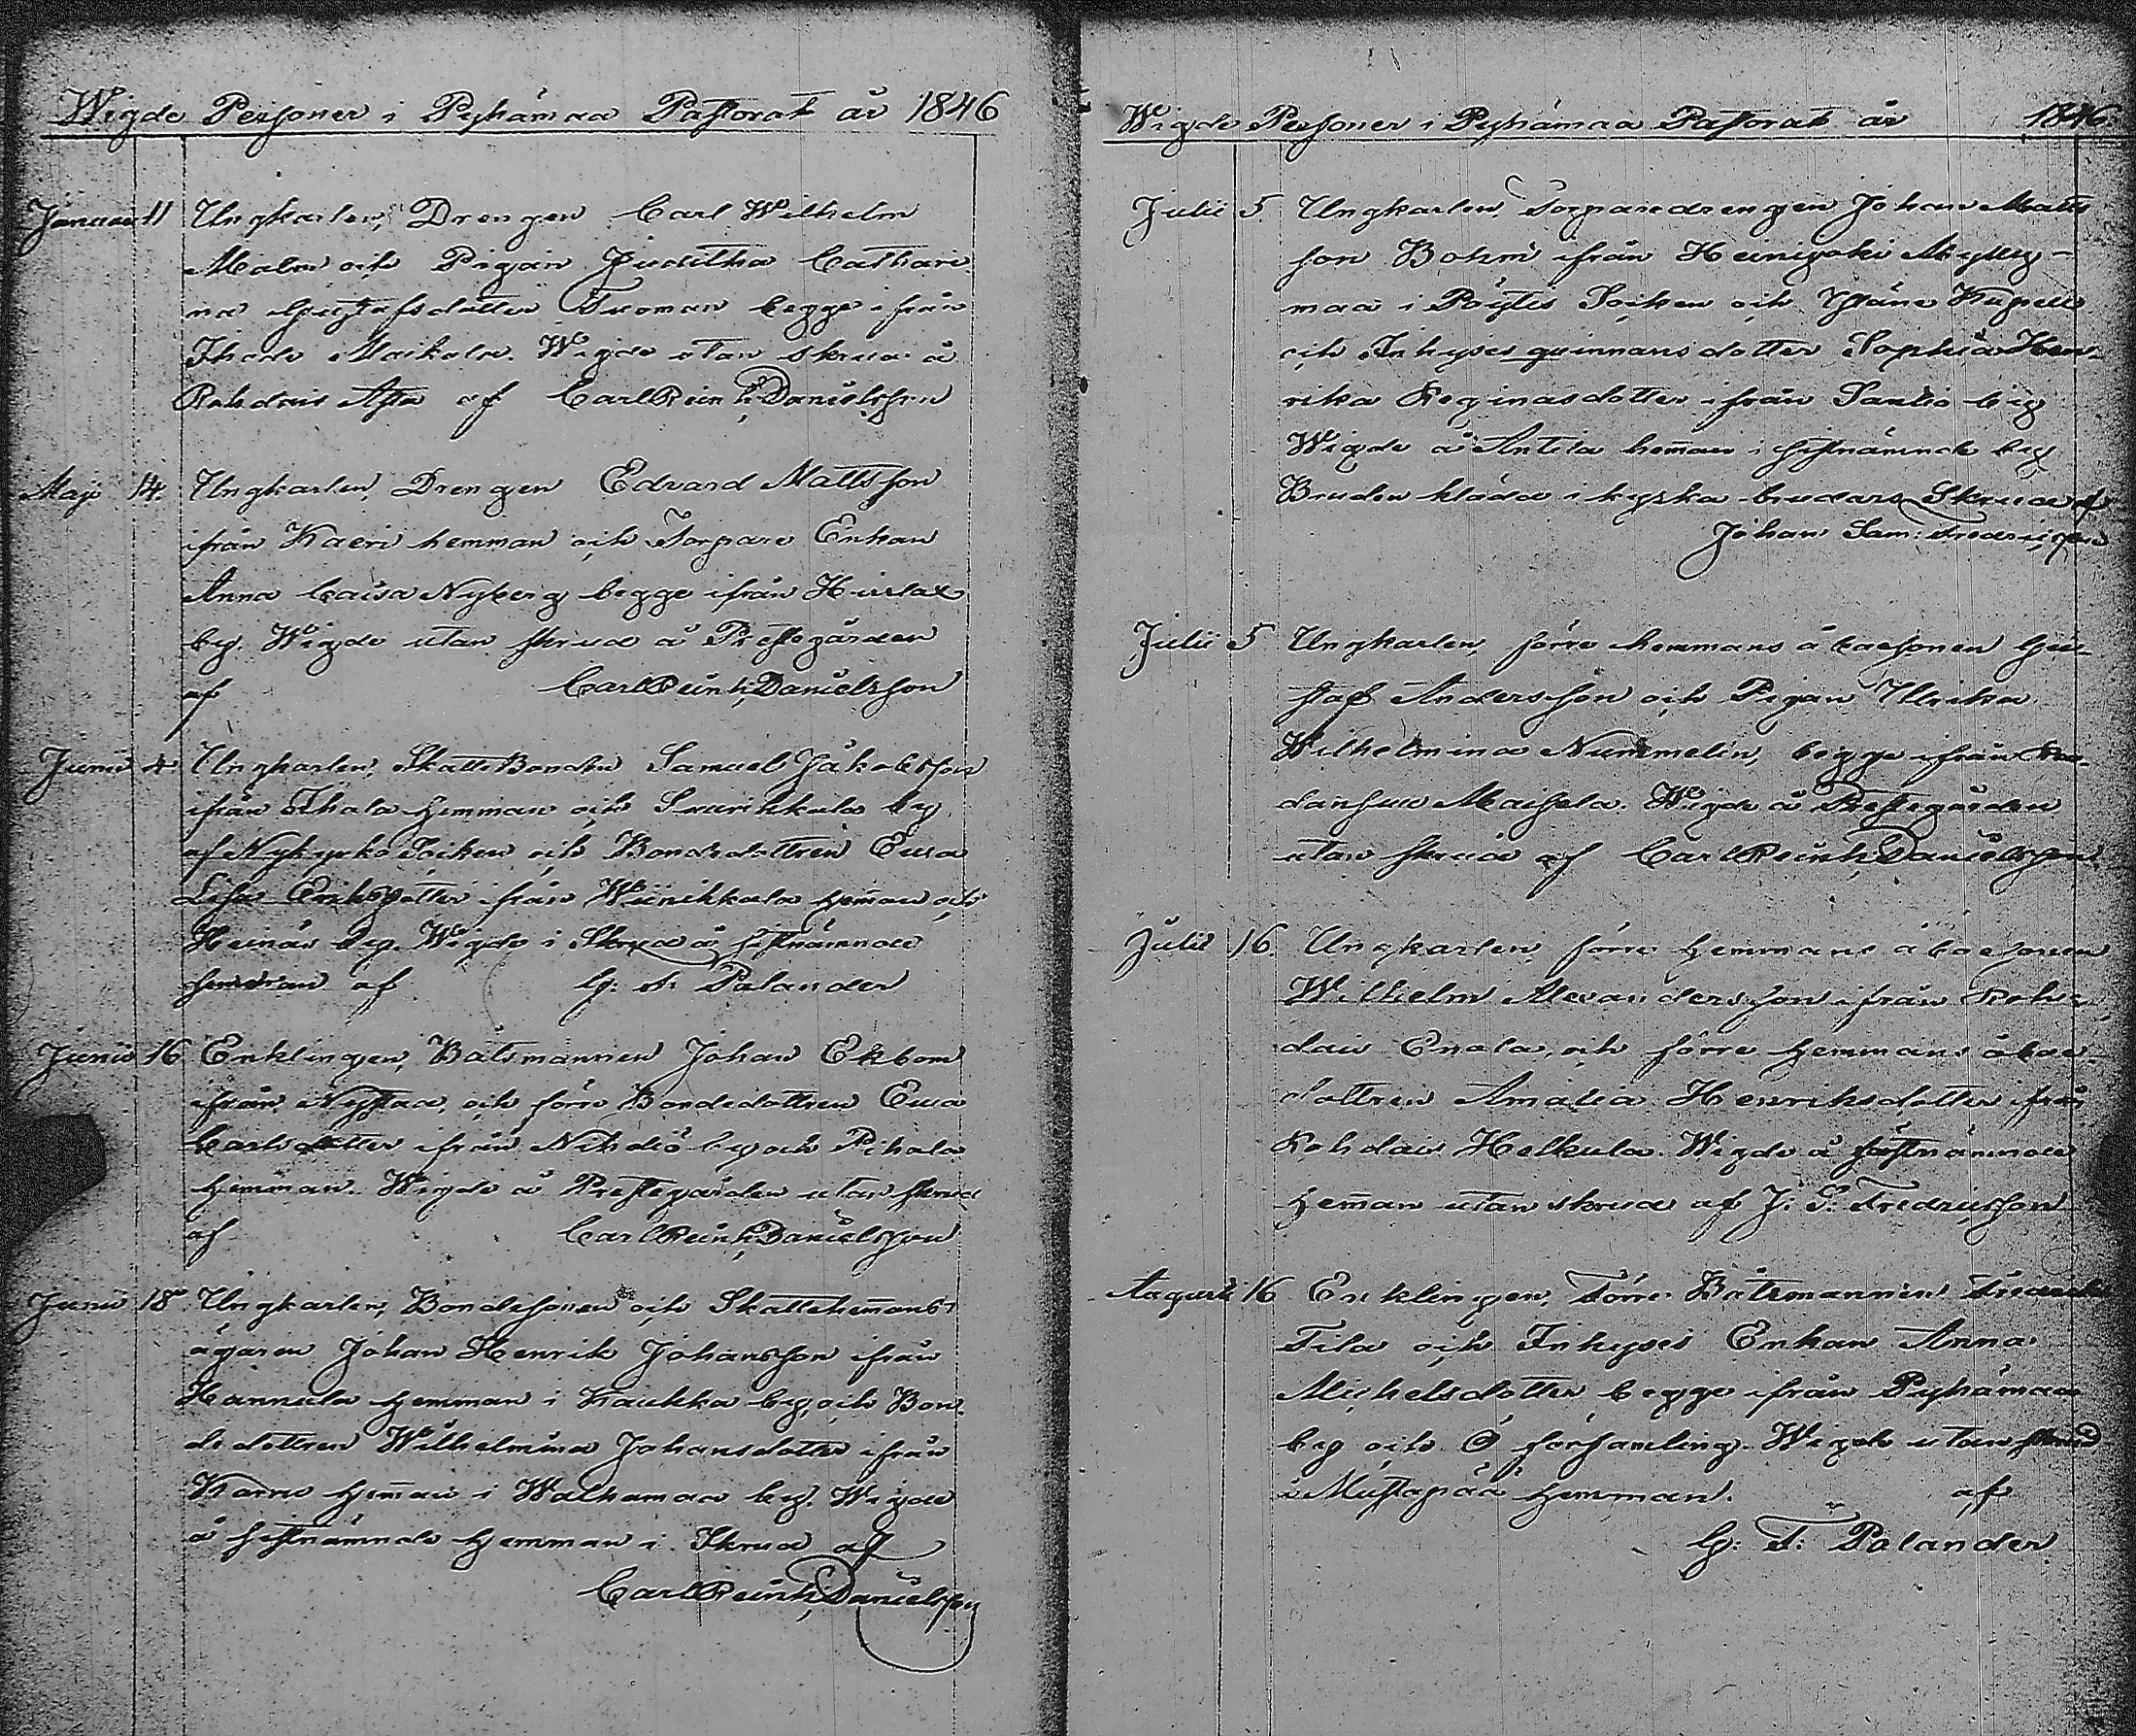 Wigde Personer i Pyhämaa Pastorat år 1846
Januari 11 Ungkarlen, Drengen Carl Wilhelm
Malm och Pigan Juditha Cathari-
na Gustafsdotter Tuoman begge ifrån
Ihode Maikola. Wigde utan skrud å
Rohdais Afta af Carl Reinh. Danielsson
Maji 14. Ungkarlen, Drengen Edvard Mattsson
ifrån Kaeri hemman och Torpare Enkan
Anna Caisa Nyberg begge ifrån Hirslax
by. Wigde utan skrud å Prestegården
af Carl Reinh. Danielsson
Junii 4 Ungkarlen, Skatte Bonden Samuel Jakobsson
ifrån Ihala hemman och Suurikkala by
af Nykyrko Socken och Bondedottren Eva
Lisa Eriksdotter ifrån Wiinikkala heman och
Heinäis by. Wigde i Skrud å sistnämnde
hemman af G: F: Palander
Junii 16 Enklingen, Båtsmannen Johan Ekbom
ifrån Nystad, och förre Bondedottren Eva
Carlsdotter ifrån Nihdiö by och Pihala
hemman. Wigde å Prestegården utan skrud
af Carl Reinh. Danielsson
Junii 18 Ungkarlen, Bondesonen och Skattehemans
ägaren Johan Henrik Johansson ifrån
Hannula hemman i Kaukka by, och Bon-
dedottren Wilhelmina Johansdotter ifrån
Karru heman i Walkamaa by. Wigde
å sistnämnde hemman i Skrud af
Carl Reinh. Danielsson
Wigde Personer i Pyhämaa Pastorat år 1846.
Julii 5. Ungkarlen, Torparedrengen Johan Matts
son Bohm ifrån Heinijoki
maa i Pöytis Socken och Yläne Kapell
och Inhyses qvinnans dotter Sophia Hen-
rika Reginasdotter ifrån Santio by
Wigde å Antila heman i sistnämnde by
Bruden klädd i kyska brudars Skrud af
Johan Sam: Fredricsson
Julii 5 Ungkarlen, förre hemmans åboesonen Gu-
staf Andersson och Pigan Ulrika
Wilhelmina Nummelin, begge ifrån Ro-
daisuu Maisela. Wigde å Prestegården
utan skrud af Carl Reinh. Danielsson
Julii 16. Ungkarlen, förre hemmans åboesonen
Wilhelm Alexandersson ifrån Roh-
dais Enala, och förre hemmans åboe-
dottren Amalia Henriksdotter ifrån
Rohdais Helkula. Wigde å förstnämnde
heman utan skrud af J: S: Fredricsson
Augusti 16 Enklingen, Förre Båtsmannen Fredrik
Fila och Inhyses Enkan Anna
Michelsdotter begge ifrån Pyhämaa
by och Ö församling. Wigde utan skrud
i Mustapää hemman. af
G: F: Palander